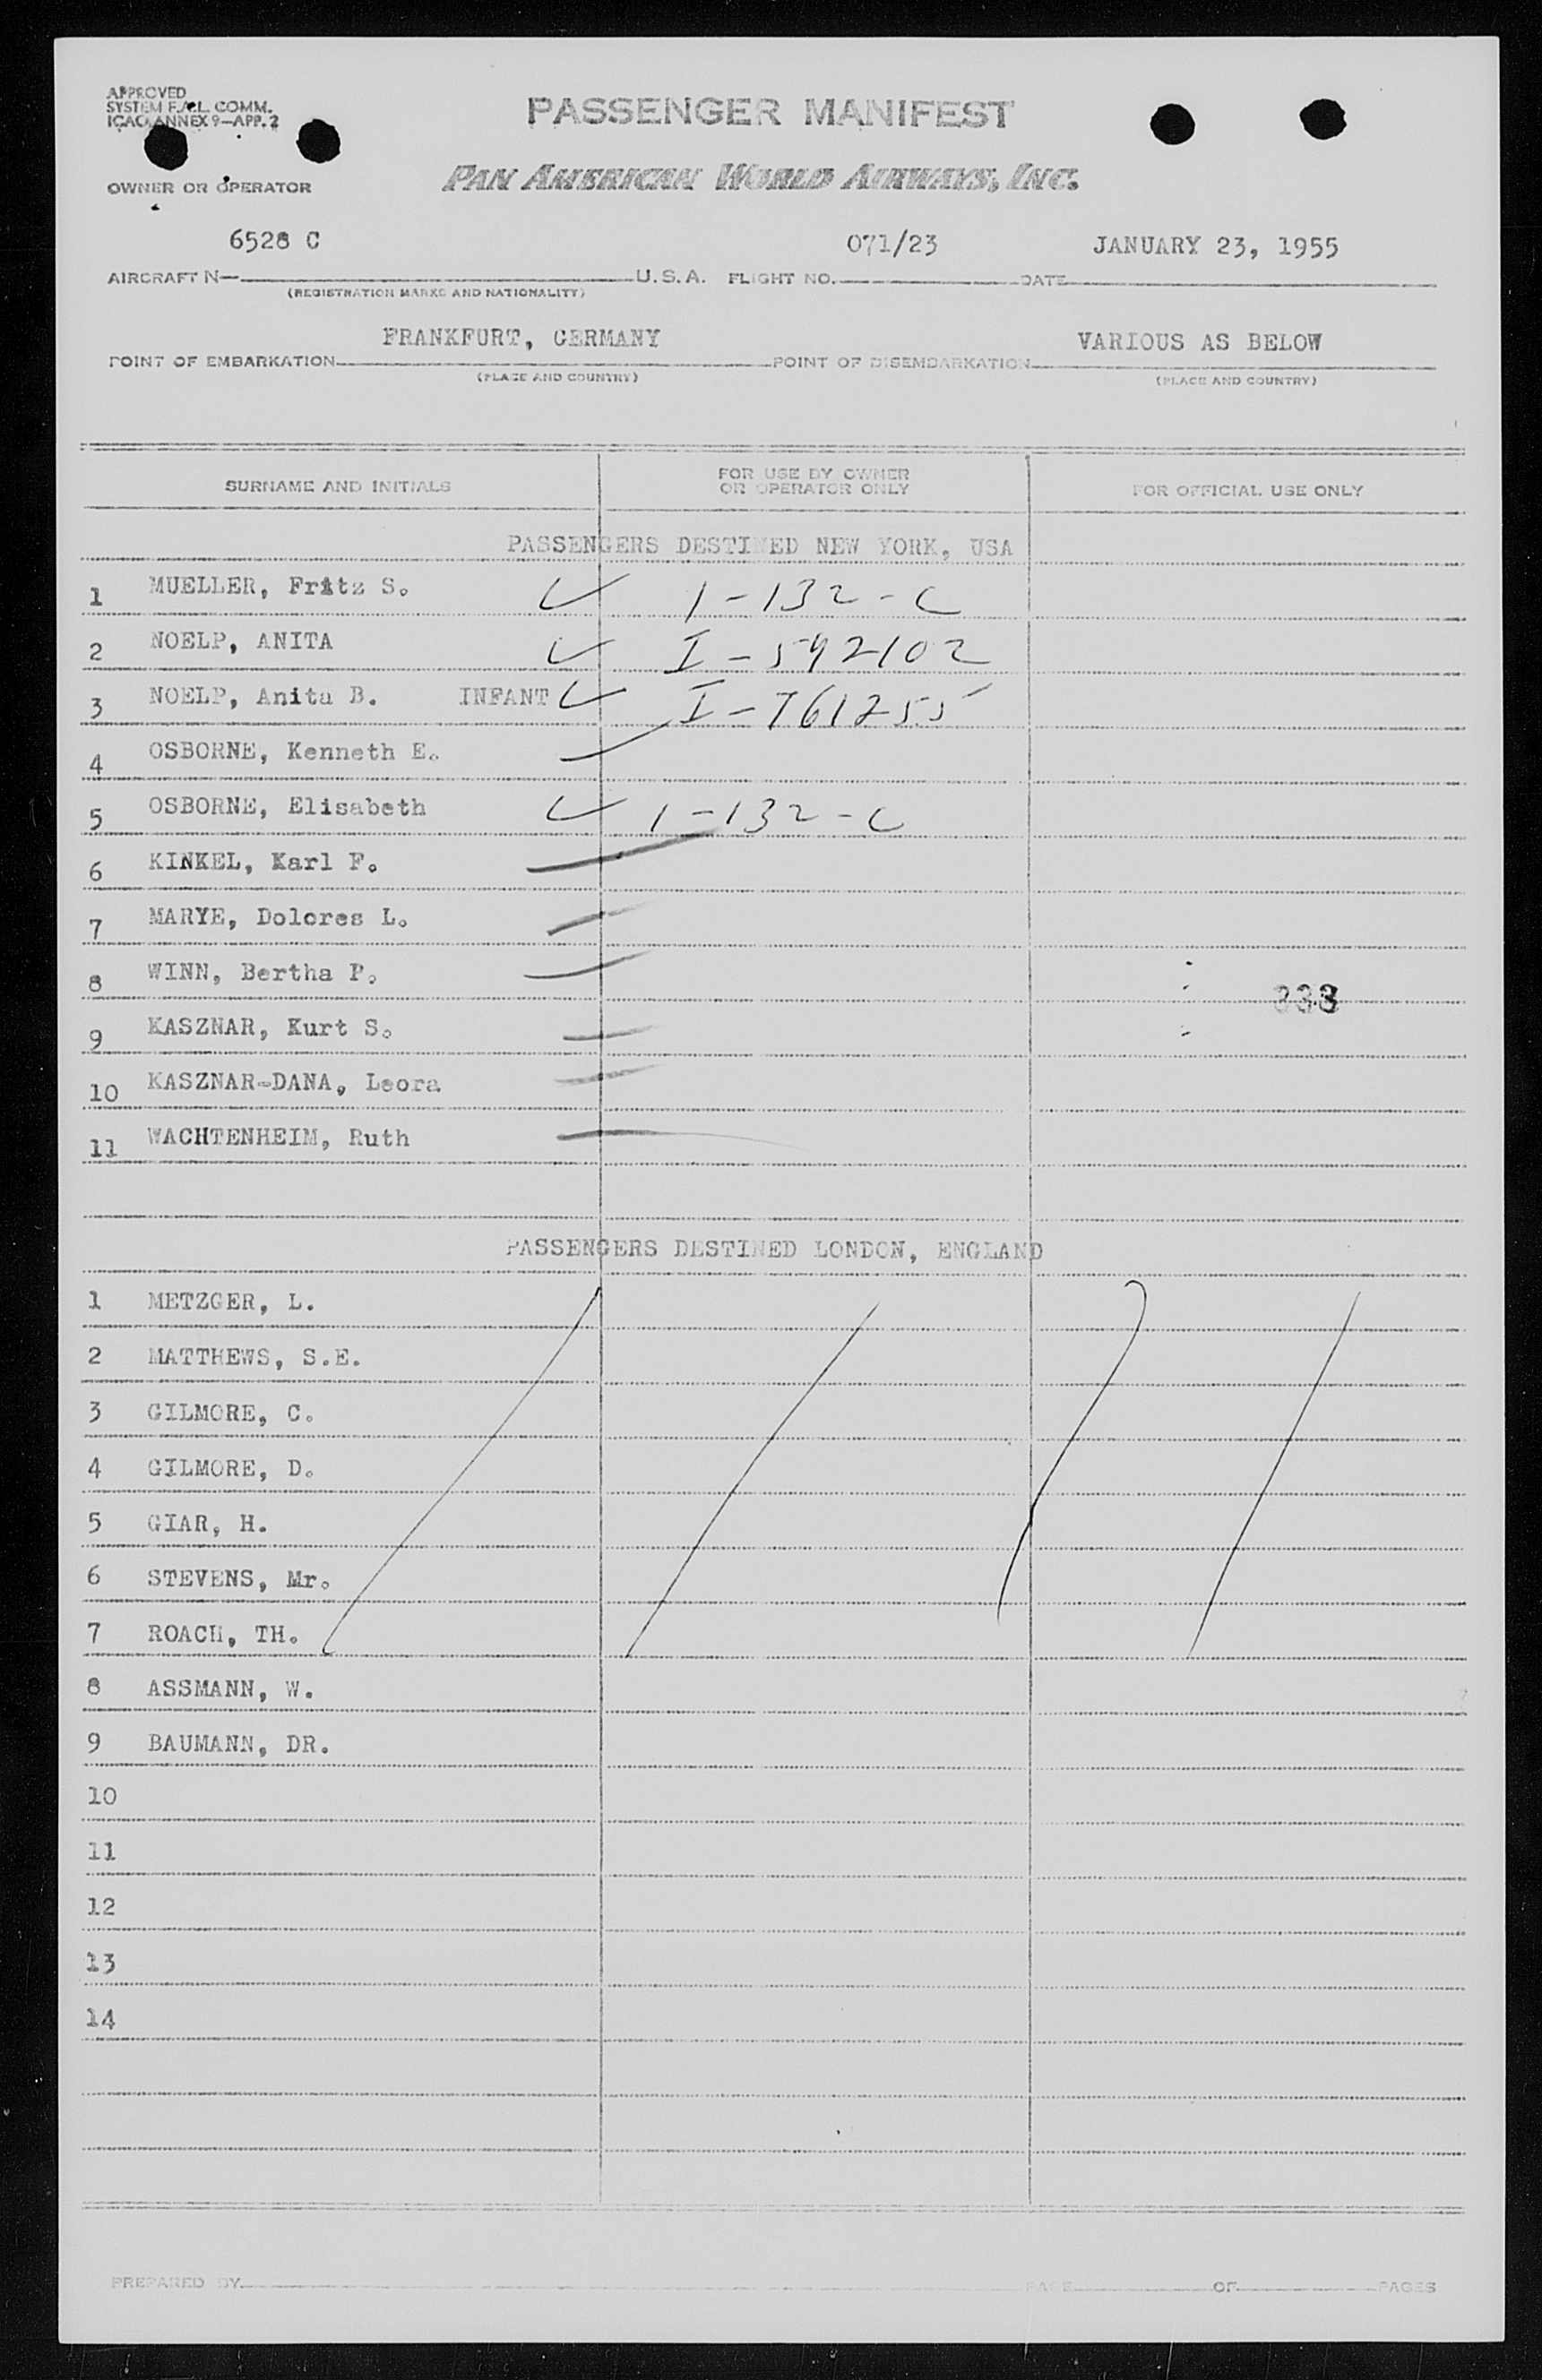 APPROVED
SYSTEM FACL. COMM.
ICAO ANNEX 9—APP. 2
PASSENGER MANIFEST
OWNER OR OPERATOR
PAN AMERICAN WORLD AIRWAYS, INC.
6528 C 071/23 JANUARY 23, 1955
AIRCRAFT N— U.S.A. FLIGHT NO. DATE
(REGISTRATION MARKS AND NATIONALITY)
FRANKFURT, GERMANY VARIOUS AS BELOW
POINT OF EMBARKATION POINT OF DISEMBARKATION
(PLACE AND COUNTRY) (PLACE AND COUNTRY)
SURNAME AND INITIALS FOR USE BY OWNER OR OPERATOR ONLY FOR OFFICIAL USE ONLY
PASSENGERS DESTINED NEW YORK, USA
1 MUELLER, Fritz S. 1-132-C
2 NOELP, ANITA I-592102
3 NOELP, Anita B. INFANT I-761255
4 OSBORNE, Kenneth E.
5 OSBORNE, Elisabeth 1-132-C
6 KINKEL, Karl F.
7 MARYE, Dolores L.
8 WINN, Bertha P.
333
9 KASZNAR, Kurt S.
10 KASZNAR-DANA, Leora
11 WACHTENHEIM, Ruth
PASSENGERS DESTINED LONDON, ENGLAND
1 METZGER, L.
2 MATTHEWS, S.E.
3 GILMORE, C.
4 GILMORE, D.
5 GIAR, H.
6 STEVENS, Mr.
7 ROACH, TH.
8 ASSMANN, W.
9 BAUMANN, DR.
10
11
12
13
14
PREPARED BY PAGE OF PAGES